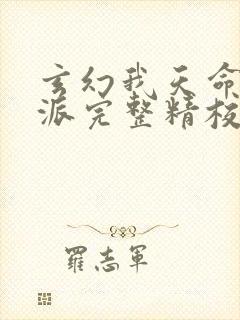 玄幻我天命
派完整精校
羅志軍